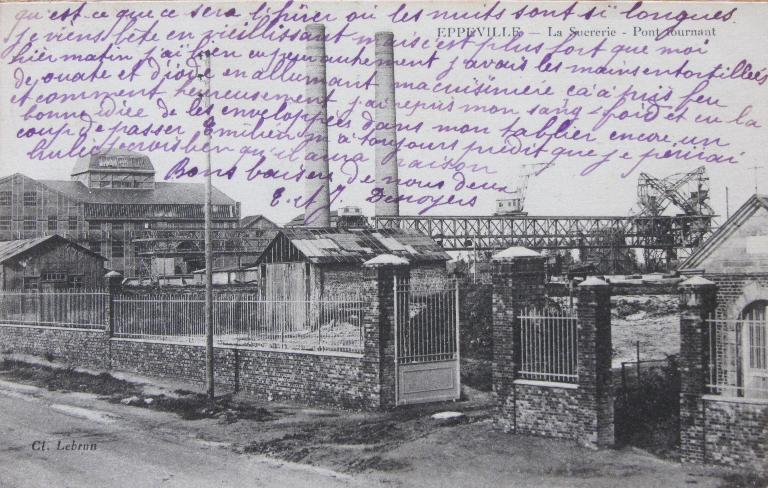 qu'est ce que ce sera l'hiver où les nuits sont si longues
EPPEVILLE — La Sucrerie - Pont tournant
je viens bête en vieillissant mais c'est plus fort que moi
hier matin j'ai bien eu peur autrement j'avais les mains entortillées
de ouate et d'iode en allumant ma cuisinière ça a pris feu
et comment heureusement j'ai repris mon sang-froid et eu la
bonne idée de les envelopper dans mon tablier encore un
coup de passer Emilien m'a toujours prédit que je périrai
brulée je crois bien qu'il aura raison
Bons baisers de nous deux
E. et J. Denoyers
Cl. Lebrun